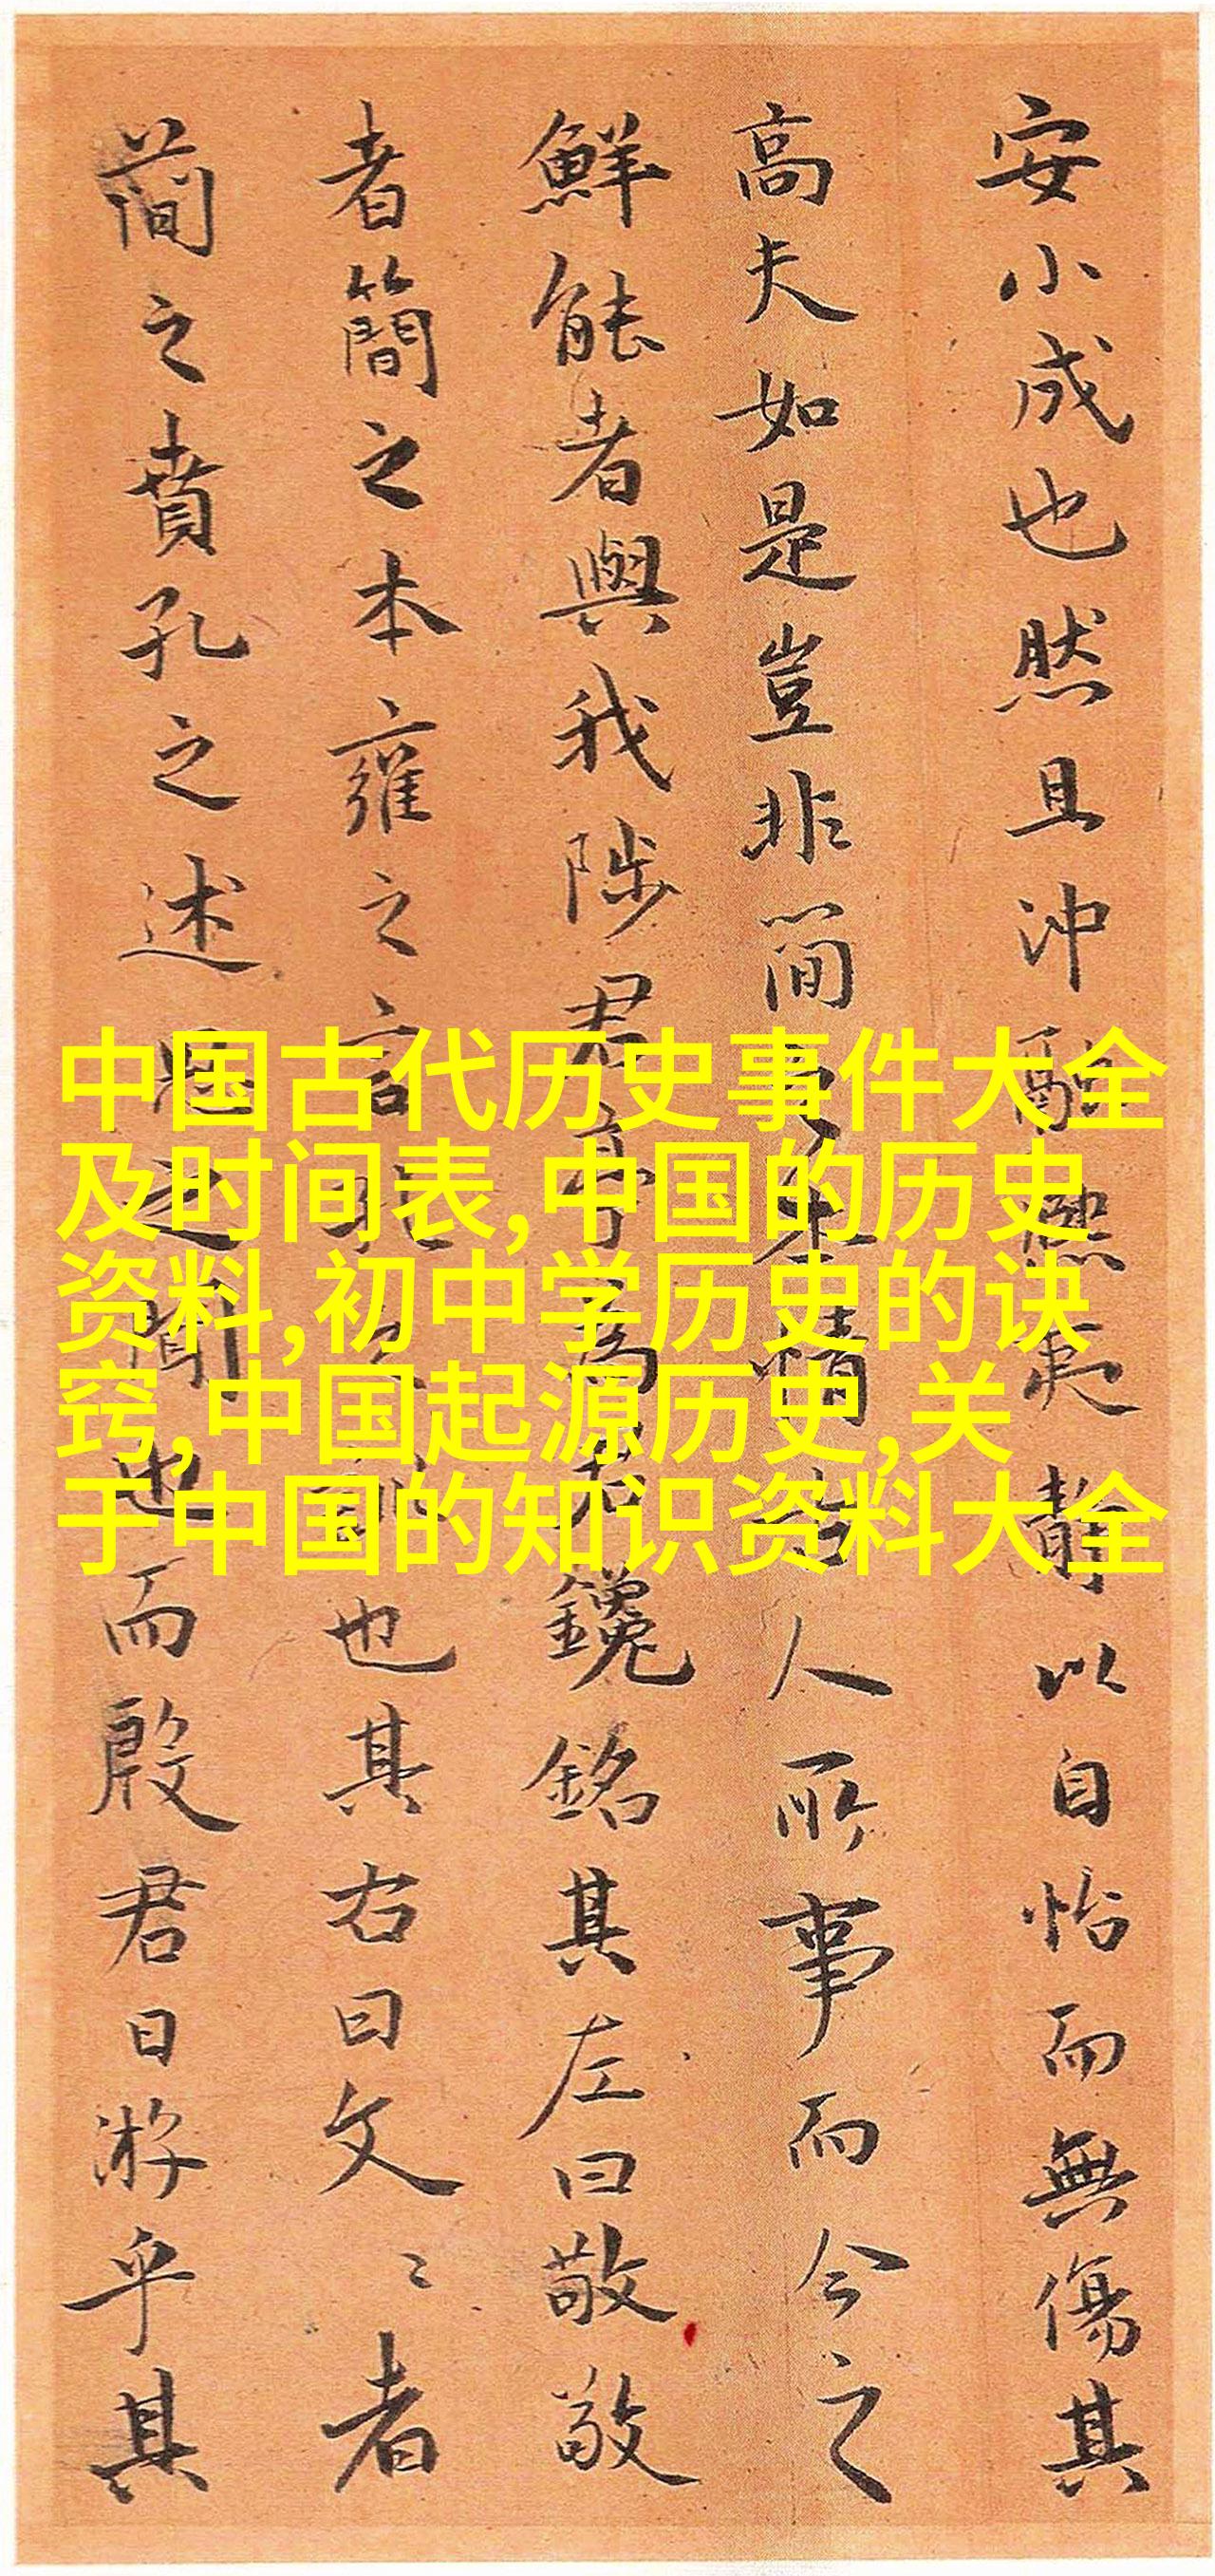 安小成也然且沖融熙夷靜以自怡而無傷其
高夫如是豈非簡之至情古人所事而今之
鮮能者與我陟君亭為君鑱銘其左曰敬敬
者簡之本雍之言孔之許也其右曰文〻者
簡之賁孔之述思之聞也而殷君日游乎其
中国古代历史事件大全
及时间表,中国的历史
资料,初中学历史的诀
窍,中国起源历史,关
于中国的知识资料大全